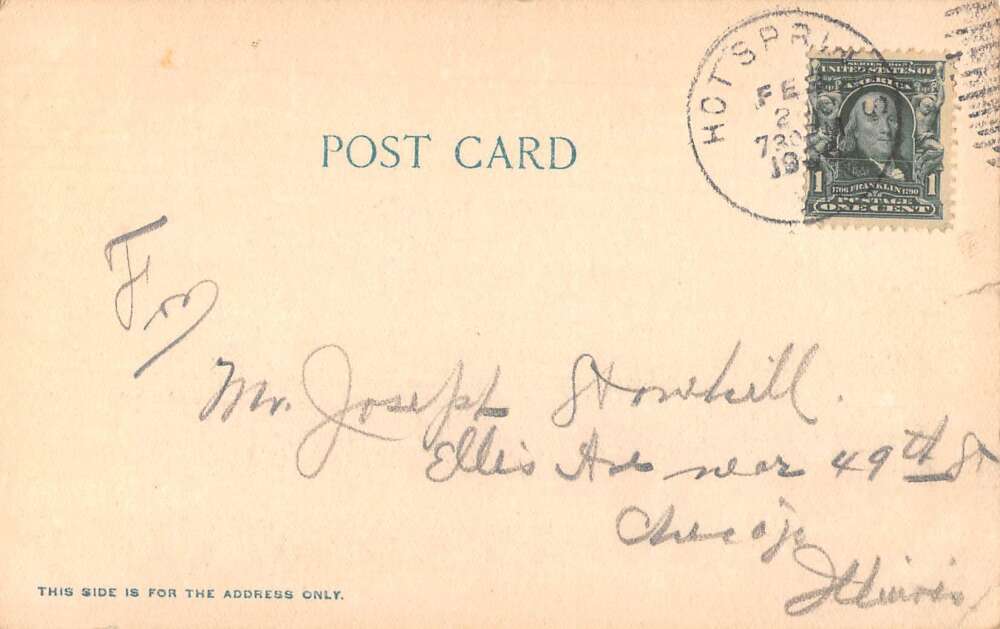 HOT SPRIN S
FE
2
730
19
SERIES 1902
UNITED STATES OF
AMERICA
1 1706 FRANKLIN 1790 1
POSTAGE
ONE CENT
POST CARD
For
Mr. Joseph Stowhill.
Ellis Ave near 49th St
Chicago
Illinois
THIS SIDE IS FOR THE ADDRESS ONLY.